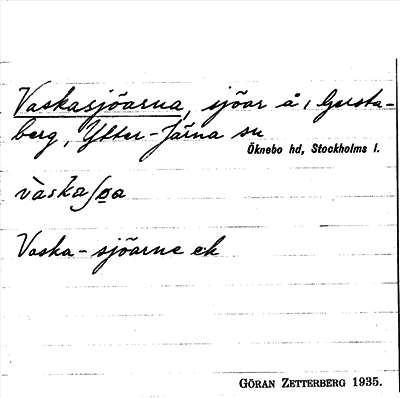 Vaskasjöarna, sjöar å 1 Gersta-
berg, Ytter-Järna sn
Öknebo hd, Stockholms l.
vàskaʃøa
Vaska-sjöarne ek
GÖRAN ZETTERBERG 1935.